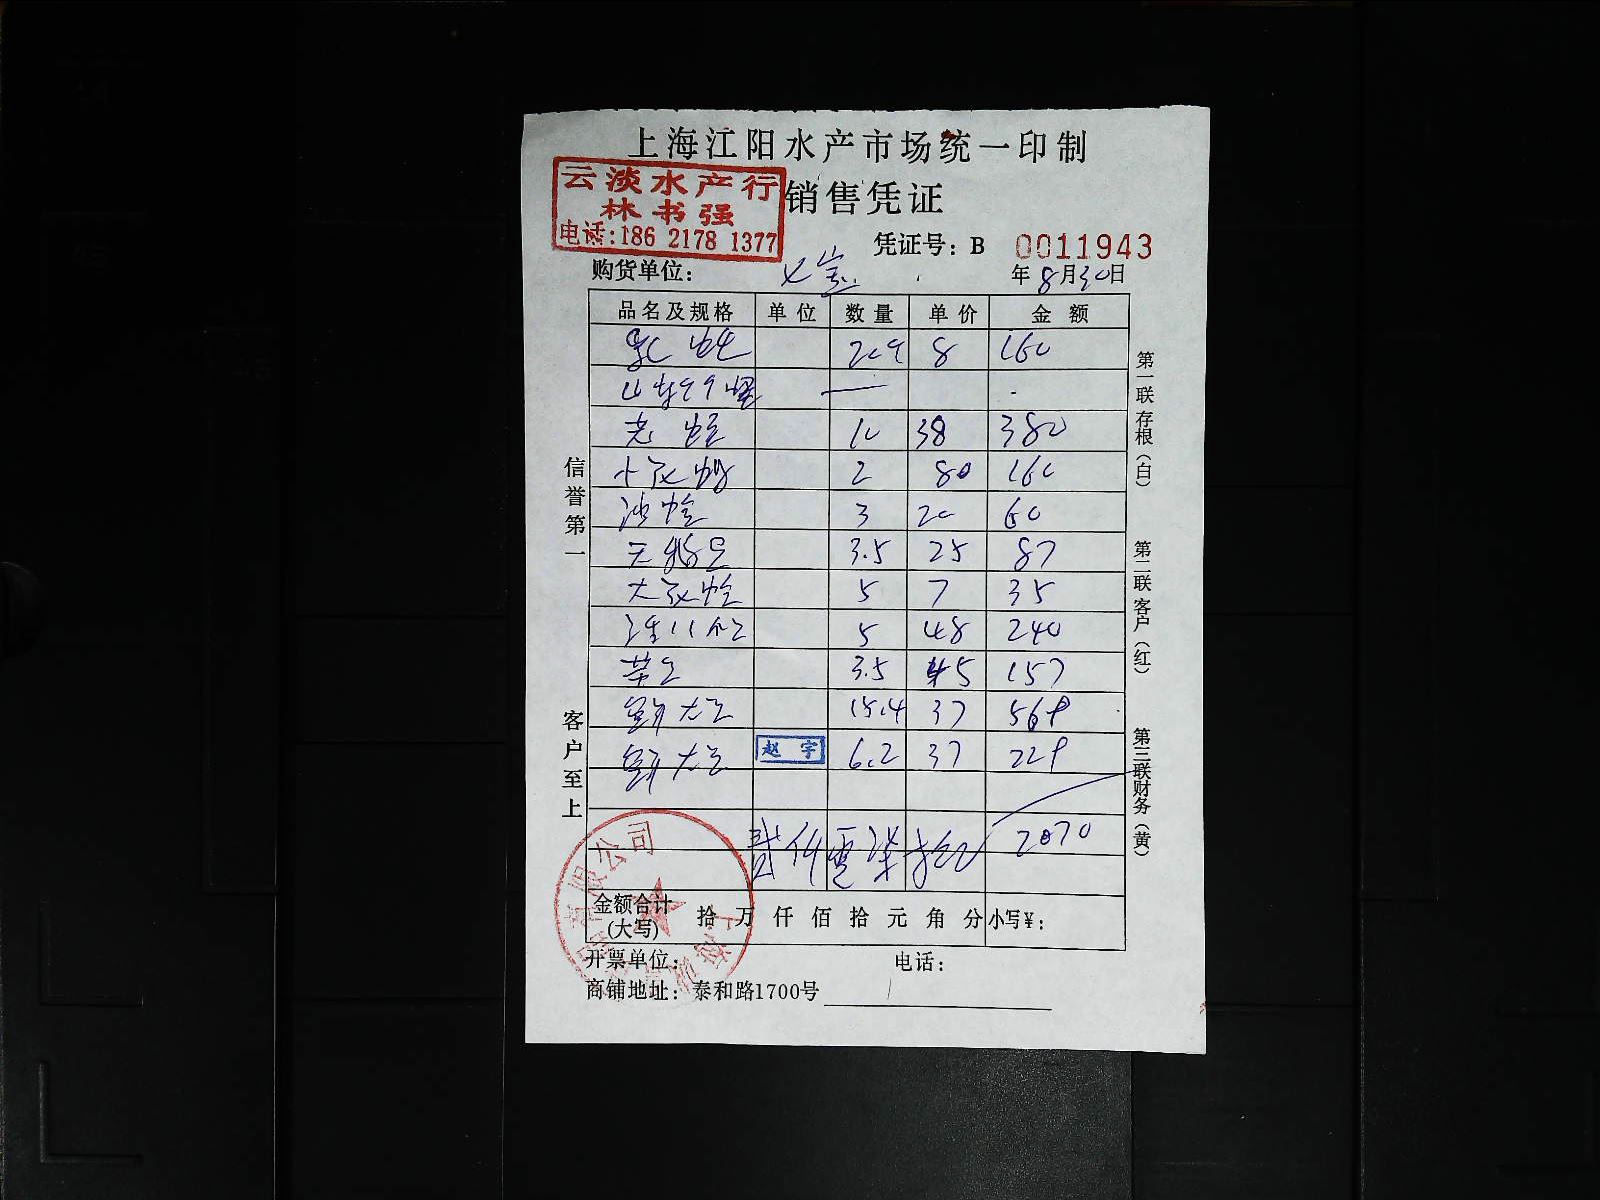 上海江阳水产市场统一印制
云淡水产行
林书强
电话:186 2178 1377
销售凭证
凭证号：B 0011943
购货单位： 七宝
年8月30日
品名及规格 单位 数量 单价 金额
8 160
山东
老蛏 10 38 380
2 80 160
沙蛤 3 20 60
3.5 25 87
5 7 35
5 48 240
3.5 45 157
大 15.4 37 569
大 赵宇 6.2 37 229
贰仟零柒拾 2070
金额合计(大写) 拾 万 仟 佰 拾 元 角 分 小写¥：
开票单位： 电话：
商铺地址：泰和路1700号
信誉第一
客户至上
第一联存根（白）
第二联客户（红）
第三联财务（黄）